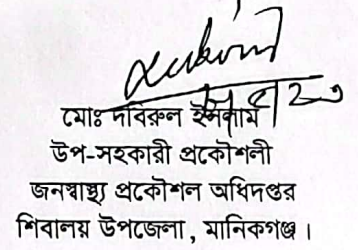 মোঃ দবিরুল ইসলাম
উপ-সহকারী প্রকৌশলী
জনস্বাস্থ্য প্রকৌশল অধিদপ্তর
শিবালয় উপজেলা, মানিকগঞ্জ।